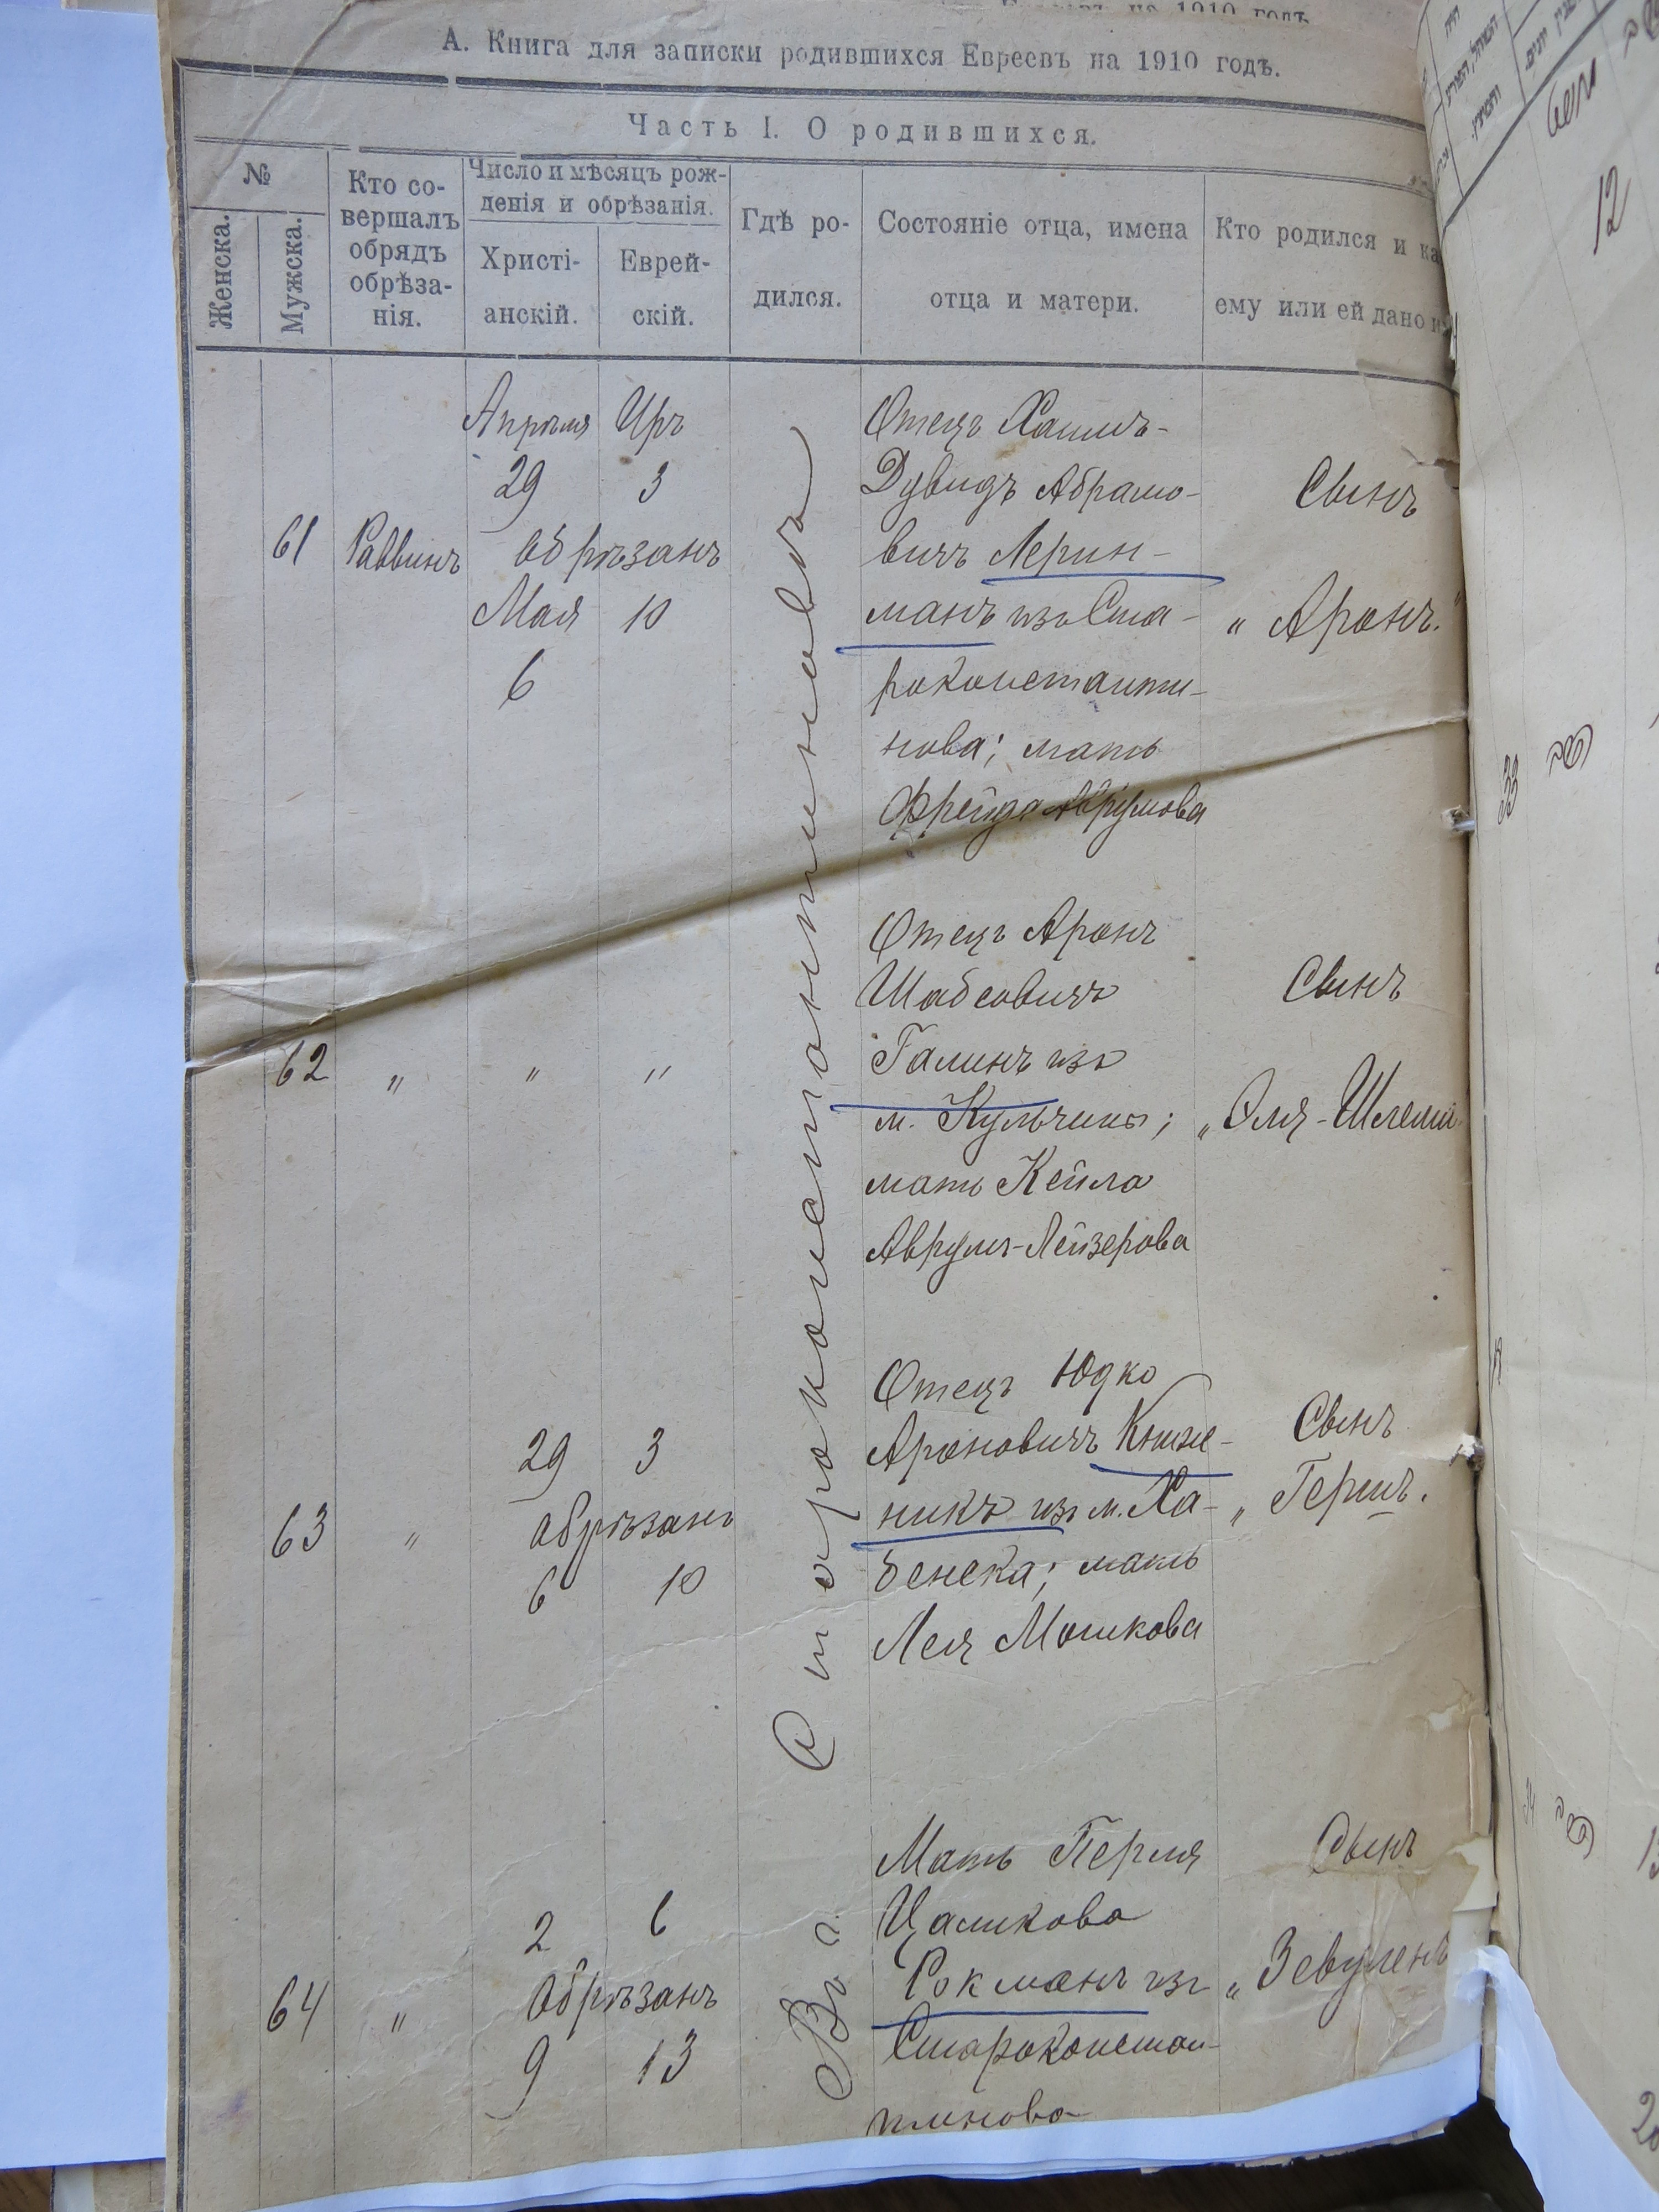 А. Книга для записки родившихся Евреевъ на 1910 годъ.
Часть I. О родившихся.
№
Женска.
Мужска.
Кто со-
вершалъ
обрядъ
обрѣза-
нія.
Число и мѣсяцъ рож-
денія и обрѣзанія.
Христі-
анскій.
Еврей-
скій.
Гдѣ ро-
дился.
Состояніе отца, имена
отца и матери.
Кто родился и ка
ему или ей дано и
Въ г. Староконстантиновѣ
61
Раввинъ
Апрѣля Іръ
29 3
обрѣзанъ
Мая 10
6
Отецъ Хаимъ-
Дувидъ Абрамо-
вичъ Лерин-
манъ изъ Ста-
роконстанти-
нова; мать
Фрейда Аврумова
Сынъ
„ Аронъ."
62 „ „ „
Отецъ Аронъ
Шабсовичъ
Галинъ изъ
м. Кульчины;
мать Кейла
Аврумъ-Лейзерова
Сынъ
„Эля-Шлема
63 „
29 3
обрѣзанъ
6 10
Отецъ Юдко
Ароновичъ Книж-
никъ изъ м. Ха-
бенска; мать
Лея Мошкова
Сынъ
„ Гершъ.
64 „
2 6
обрѣзанъ
9 13
Мать Перля
Цаликова
Рокманъ изъ
Староконстан-
тинова
Сынъ
„ Зевуленъ
12
33